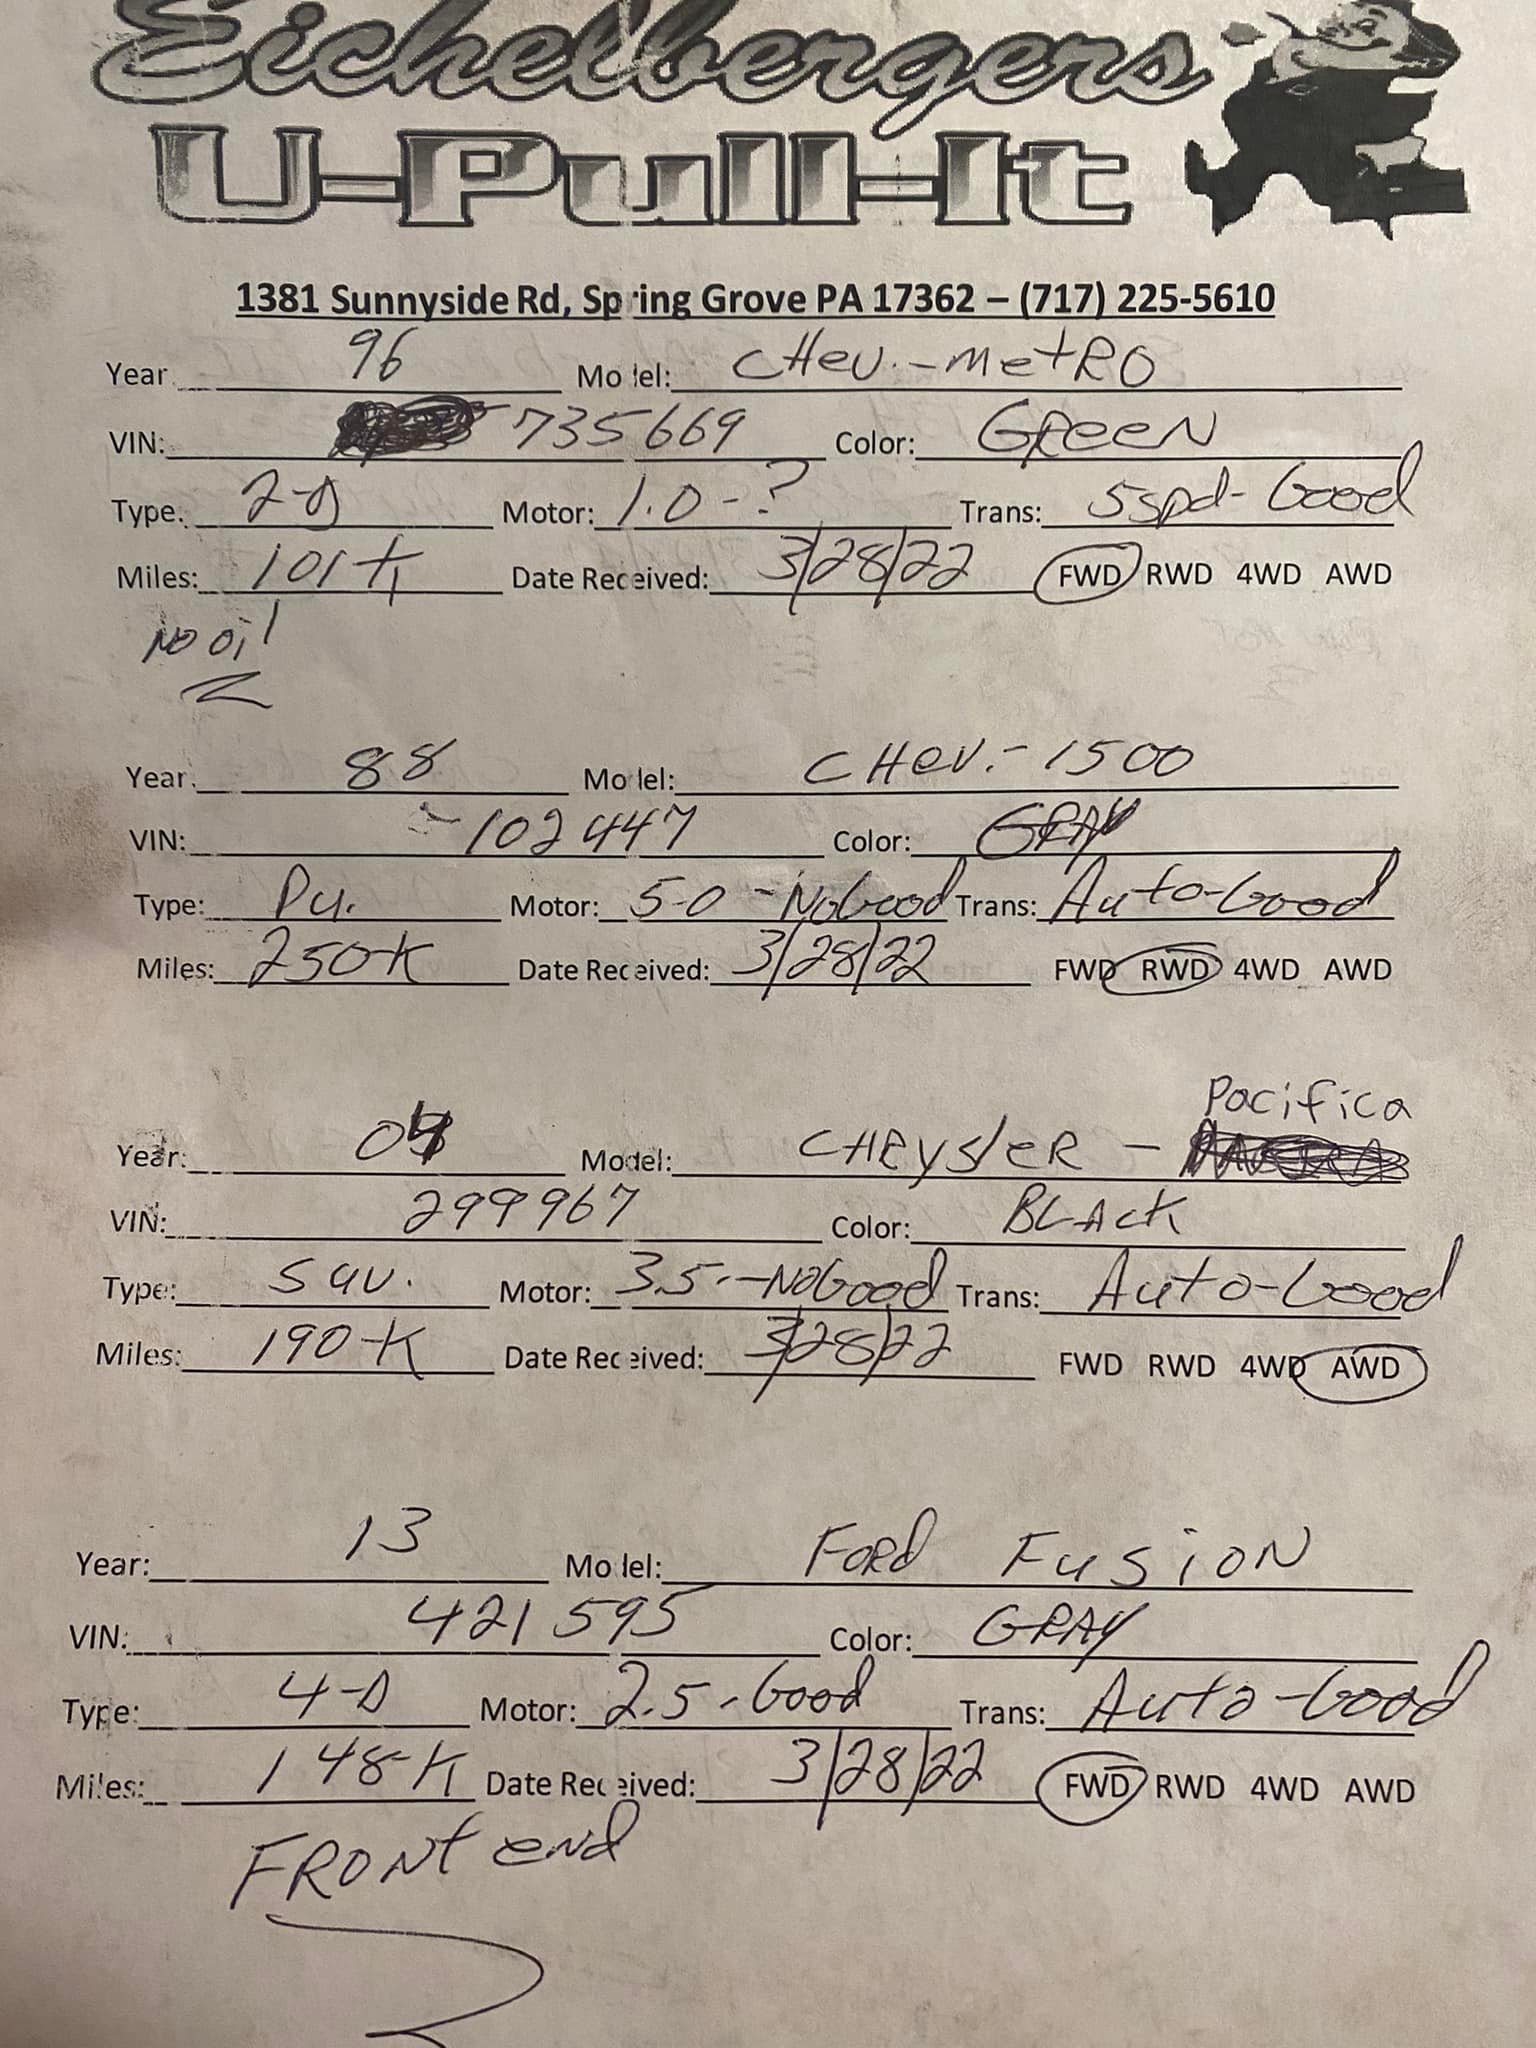 Eichelbergers
U-Pull-It
1381 Sunnyside Rd, Spring Grove PA 17362 – (717) 225-5610
Year 96 Model: CHev.-MetRO
VIN: 735669 Color: GReeN
Type. 2-D Motor: 1.0-? Trans: 5spd-Good
Miles: 101K Date Received: 3/28/22 FWD RWD 4WD AWD
NO oil
Year. 88 Model: CHev.-1500
VIN: -102447 Color: GRAY
Type: Pu. Motor: 5-0-NoGood Trans: Auto-Good
Miles: 250-K Date Received: 3/28/22 FWD RWD 4WD AWD
Pacifica
Year: 04 Model: CHRysleR -
VIN: 299967 Color: BLAcK
Type: Suv. Motor: 3.5.-NoGood Trans: Auto-Good
Miles: 190-K Date Received: 3/28/22 FWD RWD 4WD AWD
Year: 13 Model: FoRd FusioN
VIN: 421595 Color: GRAY
Type: 4-D Motor: 2.5-Good Trans: Auto-Good
Miles: 148-K Date Received: 3/28/22 FWD RWD 4WD AWD
FRONt end